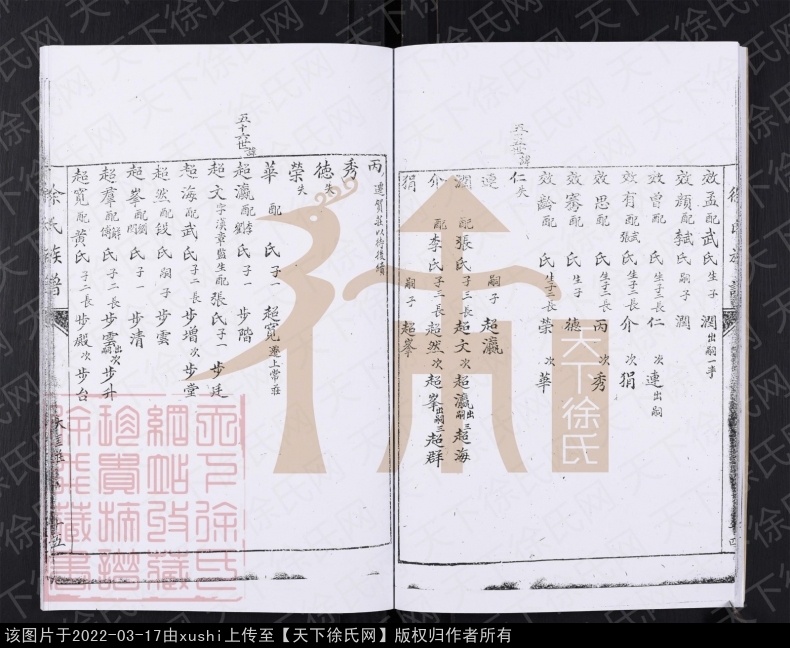 徐氏族譜
效孟 配武氏 生子 潤 出嗣一亭
效顏 配弒氏 嗣子 潤
效曾 配 氏 生子二長 仁 次 連 出嗣
效有 配武氏 生子二長 介 次 狷
效思 配 氏 生子二長 丙 次 秀
效騫 配 氏 生子 德
效齡 配 氏 生子二長 榮 次 華
五十五世諱
仁 失
連 嗣子 超瀛
潤 配張氏 子三長 超文 次 超瀛 出嗣 三 超海
介 配李氏 子三長 超然 次 超峯 出嗣 三 超群
狷 嗣子 超峯
丙 遷賀莊以待後續
秀
德 失
榮 失
華 配 氏 子一 超寬 遷上常莊
五十六世諱
超瀛 配李劉氏 子一 步階
超文 字漢章監生 配張氏 子一 步廷
超海 配武氏 子二長 步增 次 步堂
超然 配段氏 嗣子 步雲
超峯 配劉閆氏 子一 步清
超群 配解傅氏 子二長 步雲 出嗣 次 步升
超寬 配黃氏 子二長 步殿 次 步台
徐氏族譜
十五
天下徐氏
天下徐氏网
该图片于2022-03-17由xushi上传至【天下徐氏网】版权归作者所有